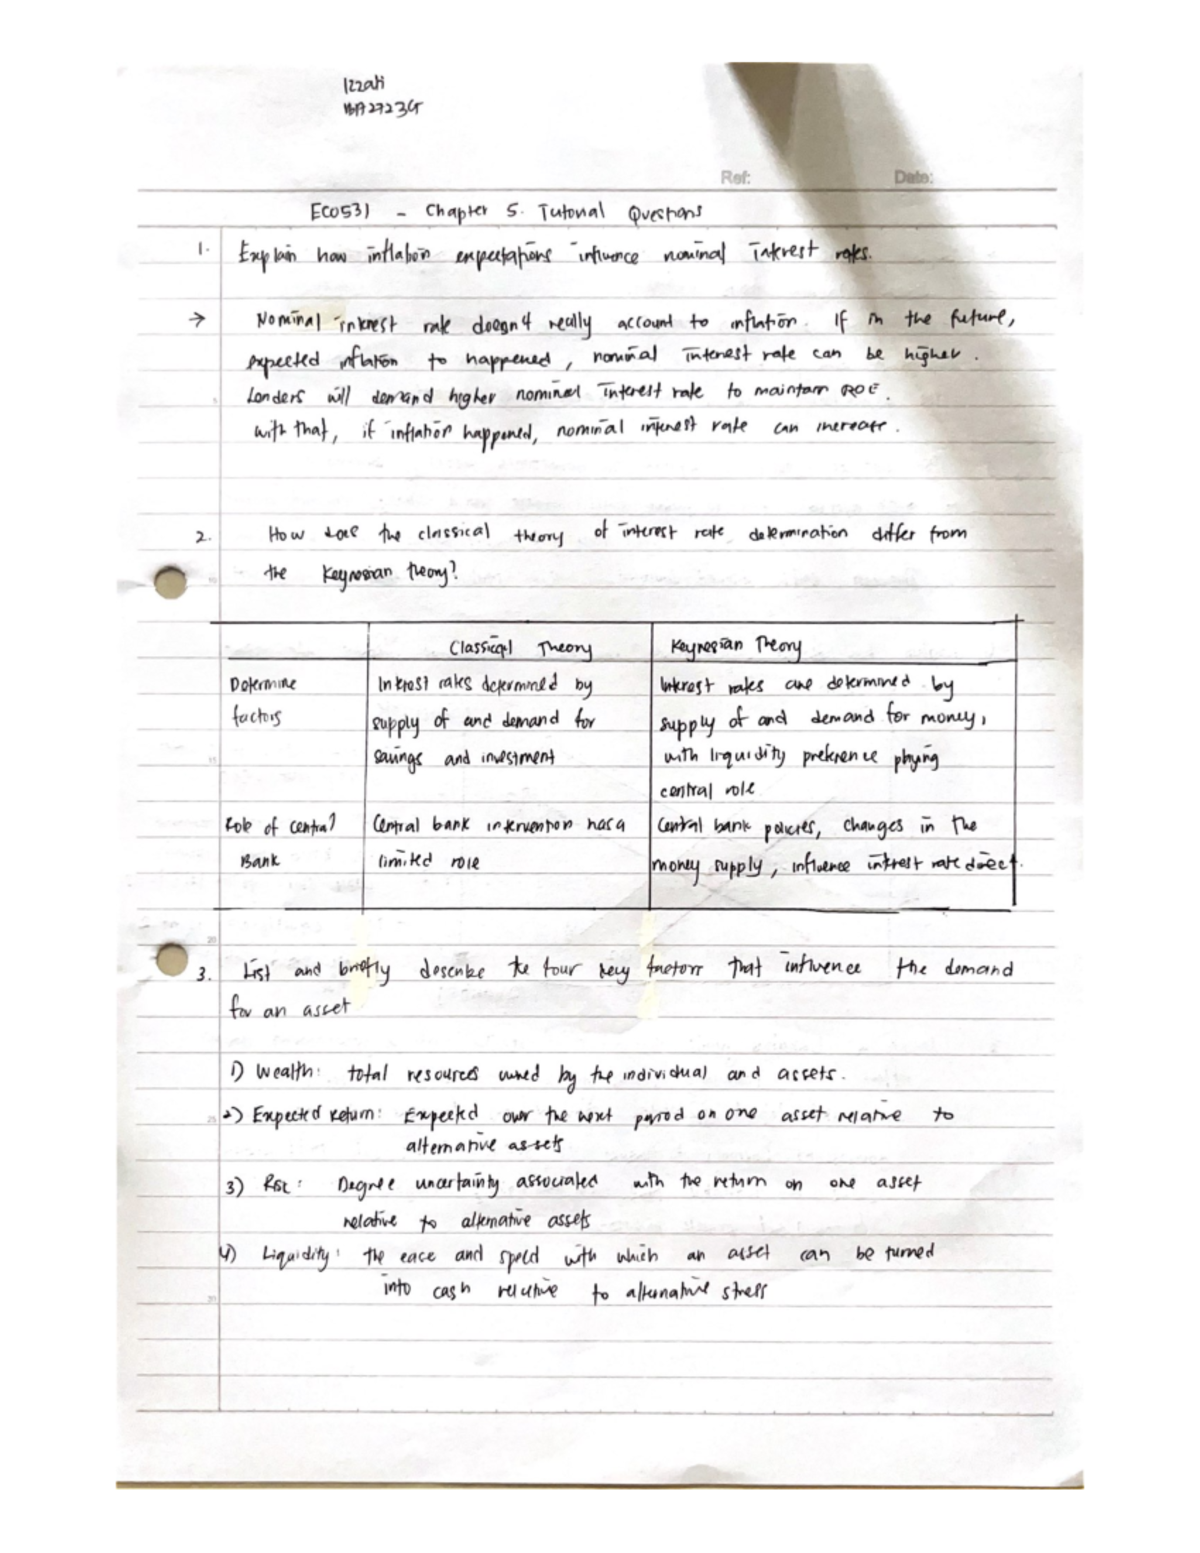 Izzati
Ref: Date:
ECO531 - Chapter 5. Tutorial Questions
1. Explain how inflation expectations influence nominal interest rates.
→ Nominal interest rate doesn't really account to inflation. If in the future,
expected inflation to happened, nominal interest rate can be higher.
Lenders will demand higher nominal interest rate to maintain ROE.
with that, if inflation happened, nominal interest rate can increase.
2. How does the classical theory of interest rate determination differ from
the Keynesian theory?
Classical Theory Keynesian Theory
Determine Interest rates determined by Interest rates are determined by
factors supply of and demand for supply of and demand for money,
savings and investment with liquidity preference playing
central role
Role of central Central bank intervention has a Central bank policies, changes in the
Bank limited role money supply, influence interest rate direct.
3. List and briefly describe the four key factors that influence the demand
for an asset
1) Wealth: total resources owned by the individual and assets.
2) Expected Return: Expected over the next period on one asset relative to
alternative assets
3) Risk: Degree uncertainty associated with the return on one asset
relative to alternative assets
4) Liquidity: the ease and speed with which an asset can be turned
into cash relative to alternative stress